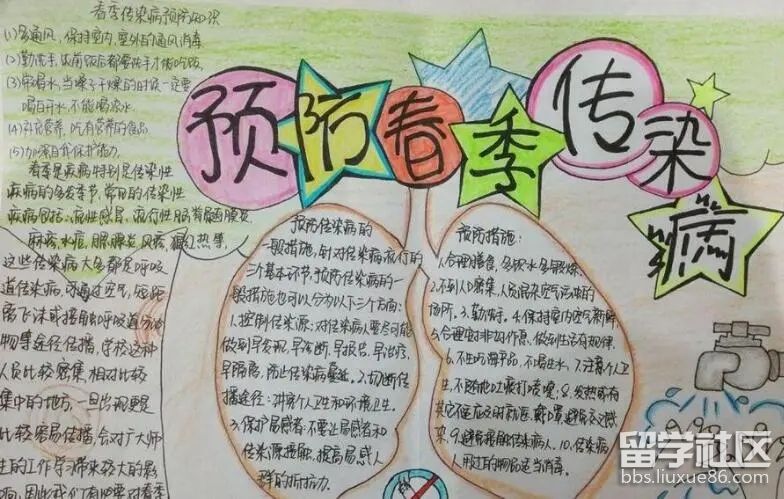 春季传染病预防知识
(1)多通风,保持室内,室外的通风消毒
(2)勤洗手,饭前饭后都要洗手才能吃饭
(3)常喝水,当嗓子干燥的时候一定要
喝白开水,不能喝凉水.
(4)补充营养,吃有营养的食品
(5)加深自我保护能力
春季是疾病特别是传染性
疾病的多发季节,常用的传染性
疾病包括:流性感冒,流行性脑脊髓膜炎,
麻疹,水痘,腮腺炎,风疹,猩红热等,
这些传染病大多都是呼吸
道传染病,可通过空气,短距
离飞沫或接触呼吸道分泌
物等途径传播,学校这种
人员比较密集,相对比较
集中的地方,一旦出现更是
比较容易传播,会对广大师
生的工作学习带来较大的影
响,因此我们有必要对春季
预防春季传染病
预防传染病的
一般措施,针对传染病流行的
三个基本环节,预防传染病的一
般措施也可以分为以下三个方面:
1.控制传染源:对传染病人要尽可能
做到早发现,早诊断,早报告,早治疗,
早隔离,防止传染病蔓延。2.切断传
播途径:讲究个人卫生和环境卫生。
3.保护易感者:不要让易感者和
传染源接触,提高易感人
群的抵抗力。
预防措施:
1.合理膳食,多饮水多锻炼.
2.不到人口密集,人员混杂空气污浊的
场所。3.勤洗手.4.保持室内空气新鲜.
5.合理安排好工作息,做到生活有规律.
6.不生吃海产品,不喝生水,7.注意个人卫
生,不随地吐痰打喷嚏;8.发热或有
其它不适及时就医,戴口罩避免交叉感
染,9.避免接触传染病人.10.传染病
人用过的物品适当消毒。
留学社区
bbs.liuxue86.com